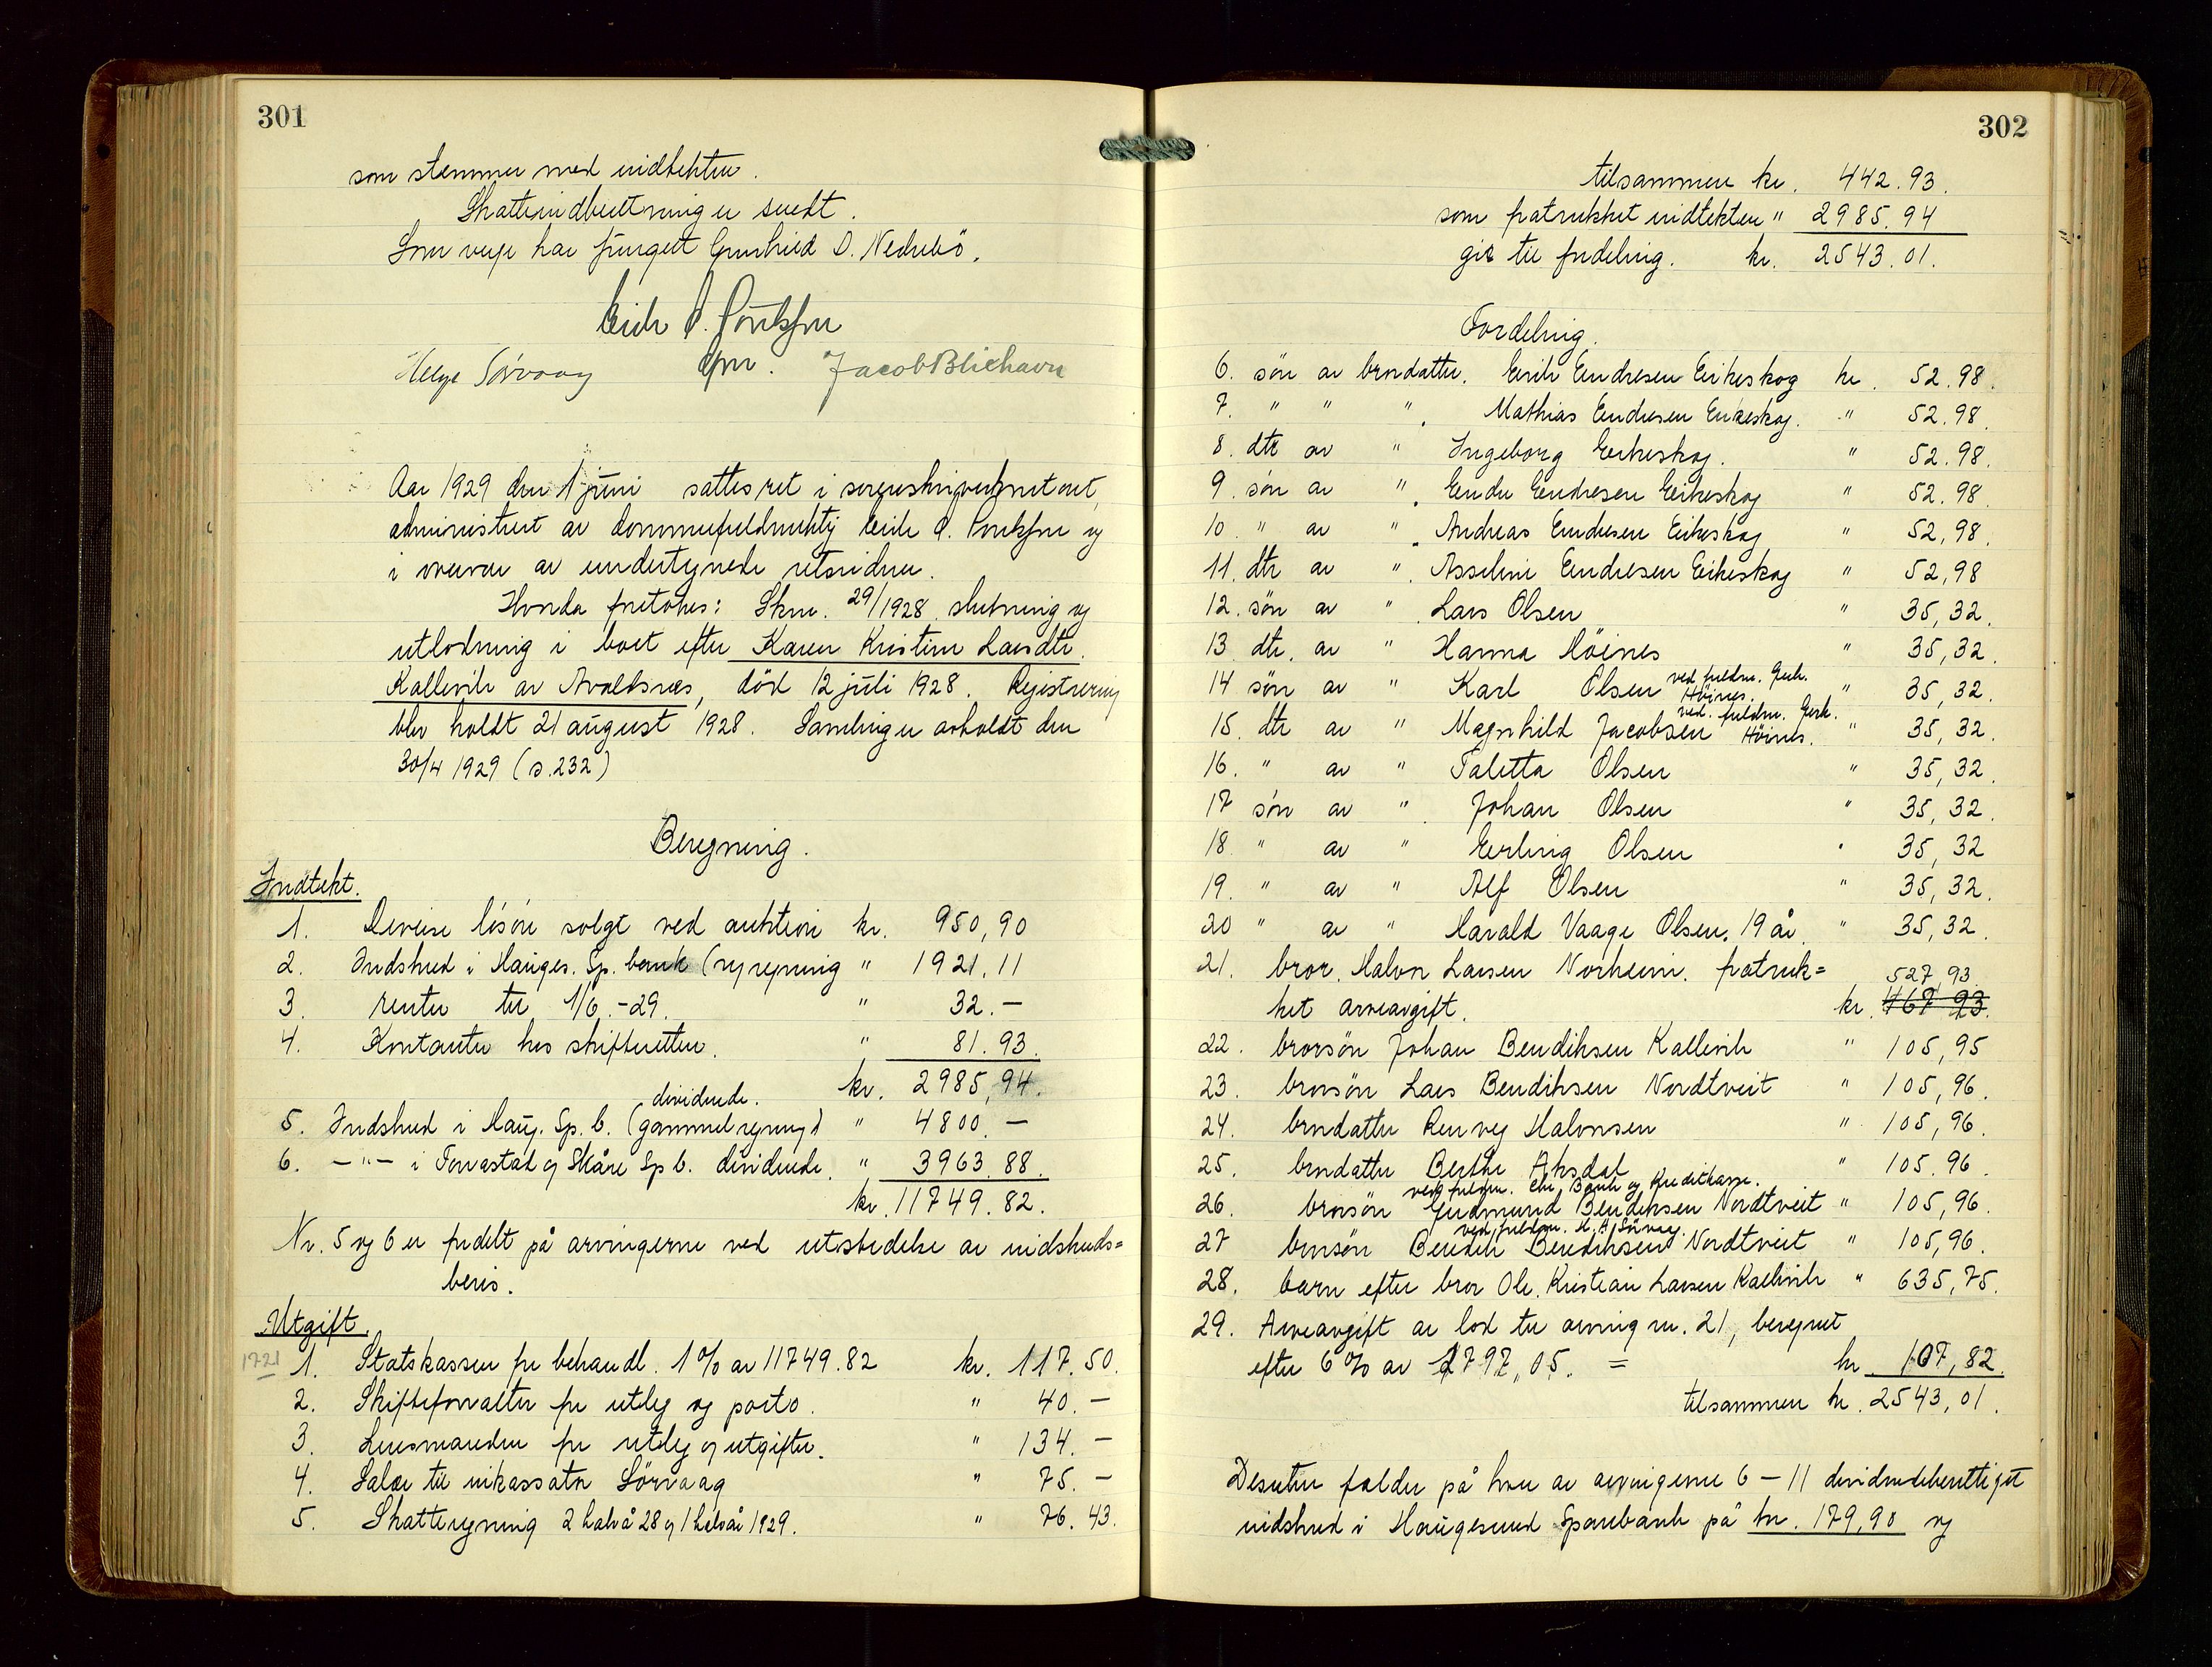 301
som stemmer med indtekten.
Skatteindberetning er sendt.
Som verge har fungert Gunhild D. Nedrebö.
Eirik
fm.
Helge Sørvaag Jacob Bliehavn
Aar 1929 den 1 juni sattes ret i sorenskriverkontoret,
administrert av dommerfuldmektig Eirik og
i overvær av undertegnede retsvidner.
Hvorda foretokes: Skm. 29/1928 slutning og
utlodning i boet efter Karen Kristine Larsdtr.
Kallevik av Avaldsnes, död 12 juli 1928. Registrering
blev holdt 21 august 1928. Samling er avholdt den
30/4 1929 (s. 232)
Beregning.
Indtekt.
1. Diverse lösöre solgt ved auktion kr. 950,90
2. Indskud i Hauges. Sp. bank (ny regning " 1921.11
3. renter til 1/6.-29. " 32.—
4. Kontanter hos skifteretten. " 81.93.
kr. 2985,94.
dividende.
5. Indskud i Haug. Sp. b. (gammel regning) " 4800.—
6. —"— i Torvastad og Skåre Sp b. dividende. " 3963.88.
kr. 11749.82.
Nr. 5 og 6 er fordelt på arvingerne ved utstedelse av indskuds=
bevis.
Utgift.
1721 1. Statskassen for behandl. 1% av 11749.82 kr. 117.50.
2. Skifteforvalter for utleg og porto. " 40.—
3. Lensmanden for utleg og utgifter. " 134.—
4. Salær til inkassator Sörvaag " 75.—
5. Skatteregning 2 halvå 28 og 1 halvår 1929. " 76.43.
302
tilsammen kr. 442.93.
som fratrukket indtekten " 2985.94
gir til fordeling. kr. 2543.01.
Fordeling.
6. sön av brordatter. Eirik Endresen Eikeskog kr. 52.98.
7. " " " . Mathias Endresen Eikeskog. " 52.98.
8. dtr av " Ingeborg Eikeskog. " 52.98.
9. sön av " . Endre Endresen Eikeskog " 52.98.
10 " av " . Andreas Endresen Eikeskog " 52,98.
11. dtr av " . Asseline Endresen Eikeskog " 52,98
12. sön av " . Lars Olsen " 35,32.
13 dtr. av " Hanna Höines " 35,32.
14 sön av " Karl Olsen ved fuldm. Gerh. Höines. " 35,32.
15. dtr av " Magnhild Jacobsen ved. fuldm. Gerh. Höines. " 35,32.
16. " av " Taletta Olsen " 35,32.
17 sön av " . Johan Olsen " 35,32.
18. " av " Erling Olsen " 35,32
19. " av " Alf Olsen " 35,32.
20 " av " Harald Vaage Olsen. 19 år. " 35,32.
21. bror. Halvor Larsen Norheim. fratruk= 527 93.
ket arveavgift. kr. 467 93.
22. brorsön Johan Bendiksen Kallevik " 105,95
23. brorsön Lars Bendiksen Nordtveit " 105,96.
24. brordatter Renveg Halvorsen " 105,96.
25. brordatter Berthe Aksdal " 105.96.
ved fuldm. Chr. Bank og Kreditkasse.
26. brorsön Gudmund Bendiksen Nordtveit " 105,96.
ved fuldm. H. H. Sörvaag.
27 brorsön Bendik Bendiksen Nordtveit " 105,96.
28. barn efter bror Ole Kristian Larsen Kallevik " 635,75.
29. Arveavgift av lod til arving nr. 21, beregnet
efter 6% av 1797,05. = kr. 107,82.
tilsammen kr. 2543,01.
Desuten falder på hver av arvingerne 6 – 11 dividendeberettiget
indskud i Haugesund Sparebank på kr. 179,98 og